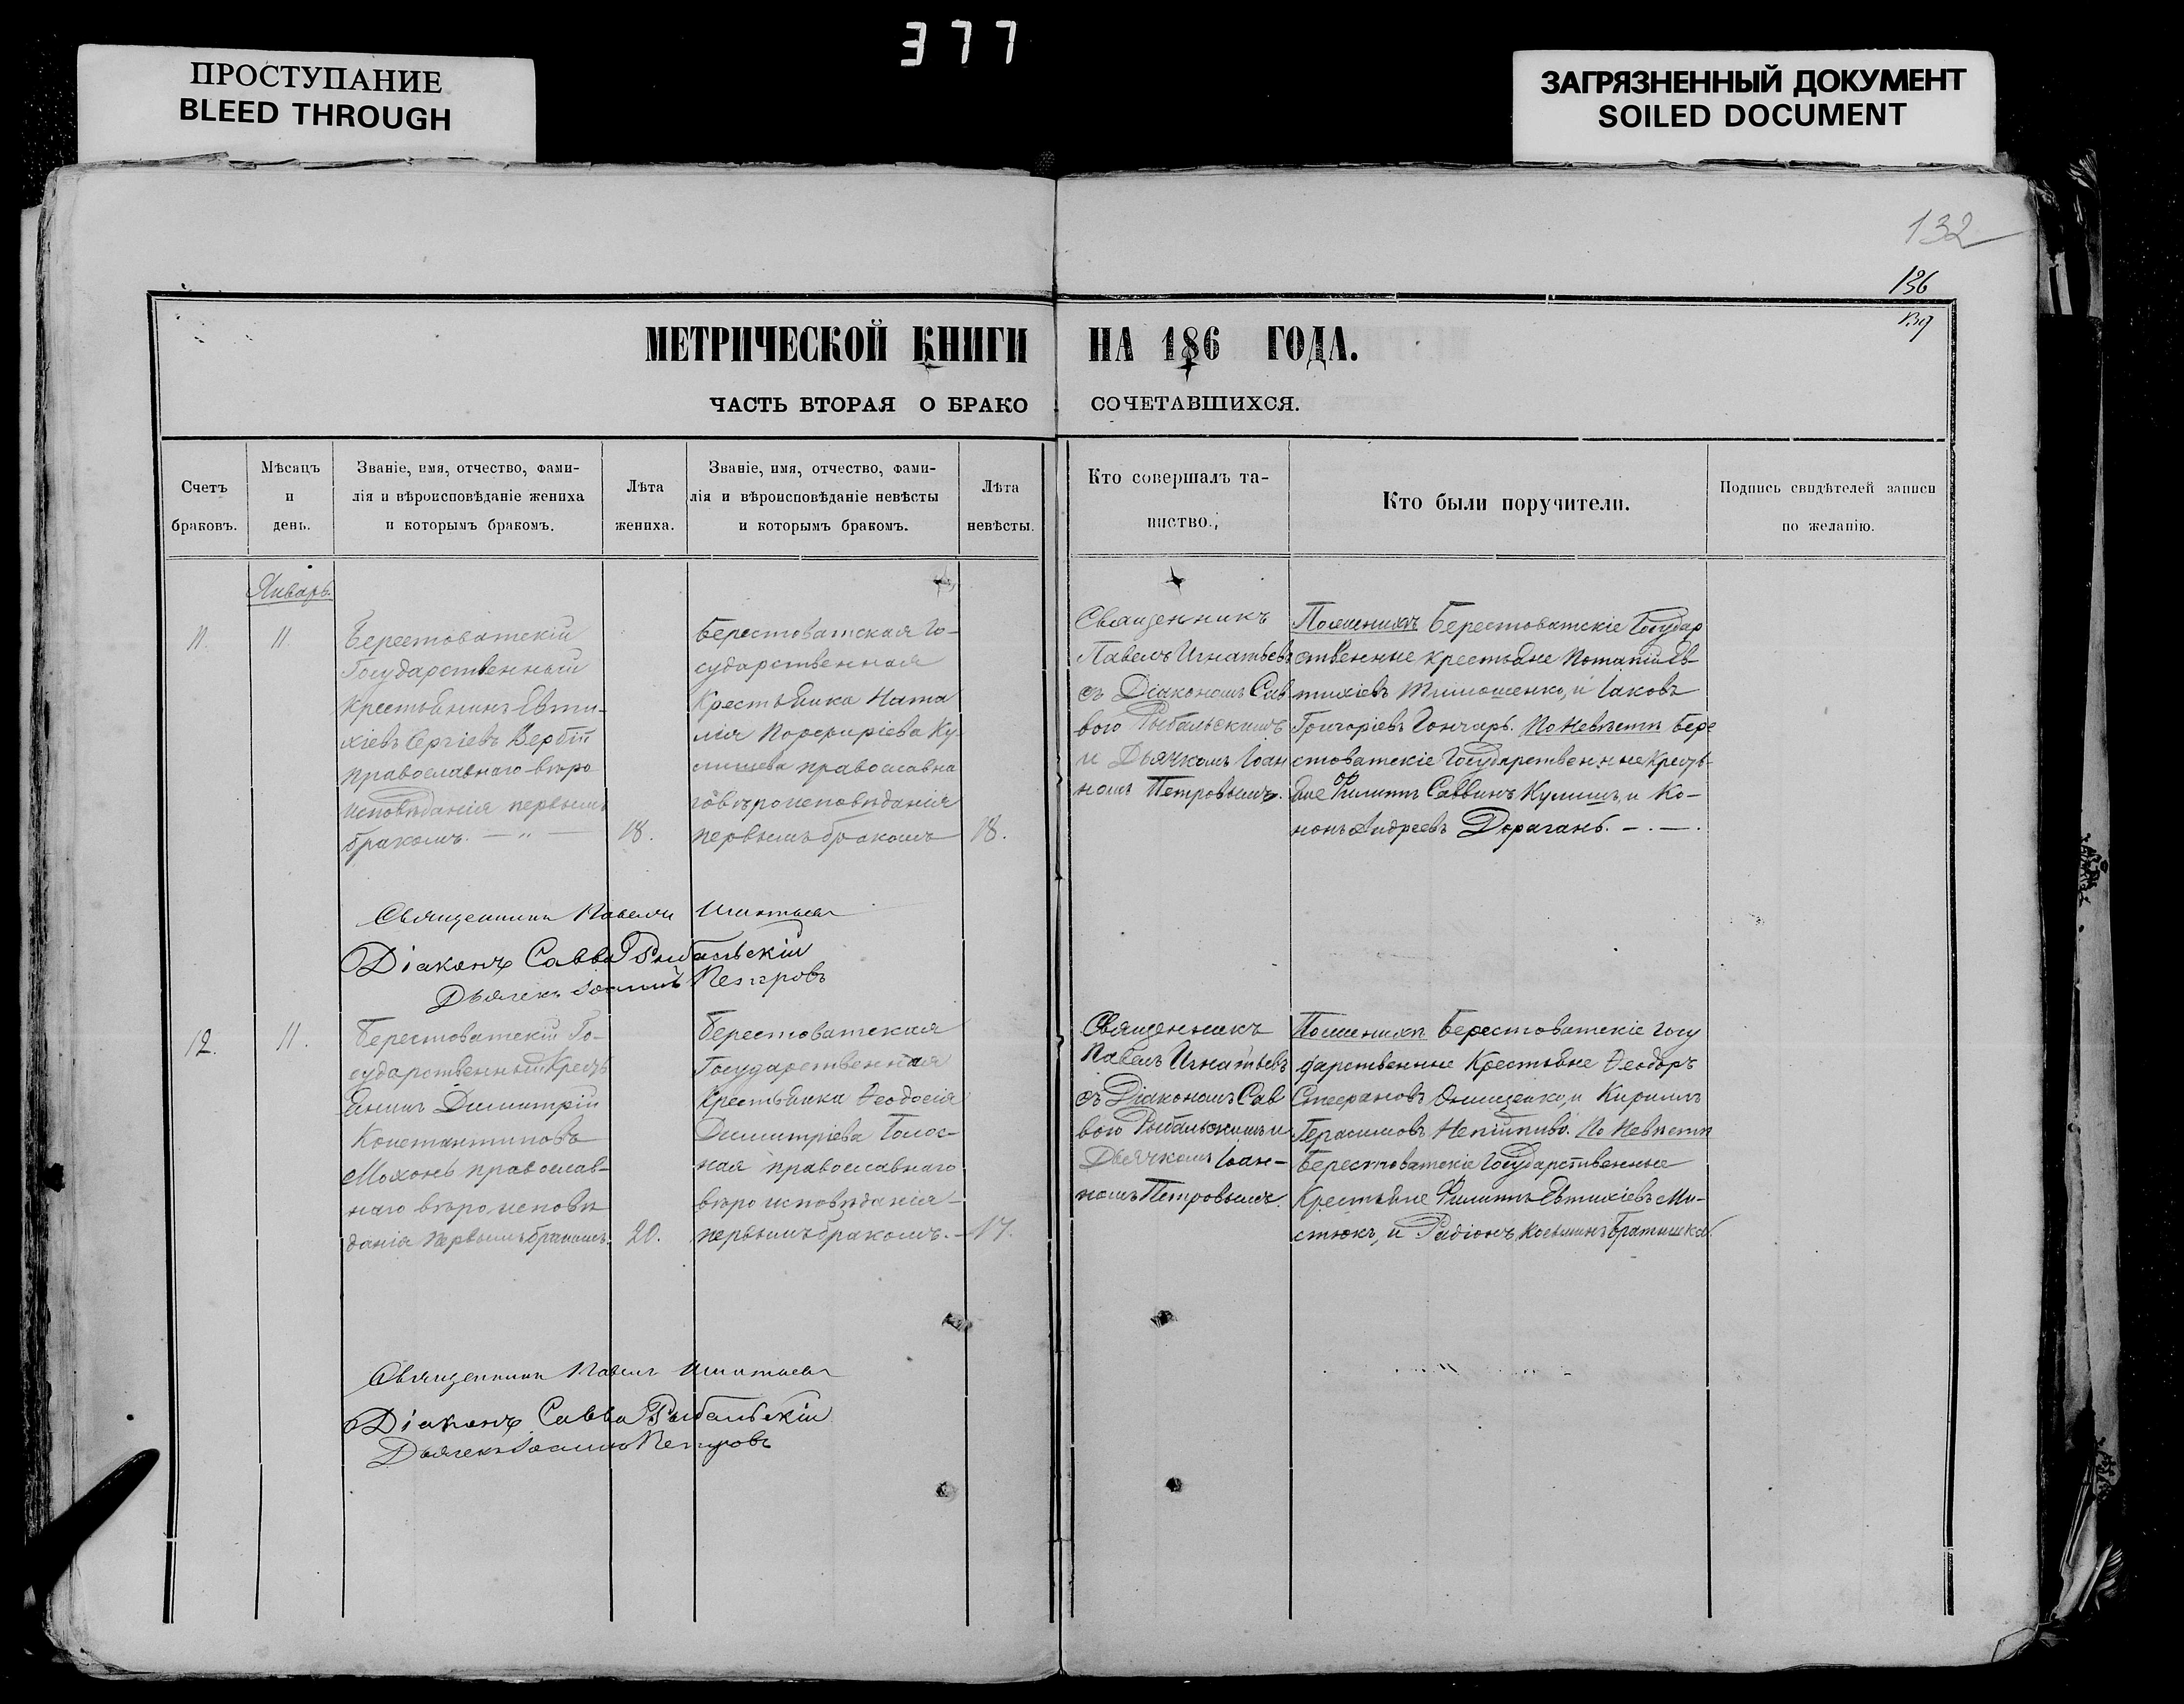 ПРОСТУПАНИЕ
BLEED THROUGH
377
ЗАГРЯЗНЕННЫЙ ДОКУМЕНТ
SOILED DOCUMENT
132
136
МЕТРИЧЕСКОЙ КНИГИ НА 186 ГОДА.
ЧАСТЬ ВТОРАЯ О БРАКО СОЧЕТАВШИХСЯ.
Счетъ
браковъ.
Мѣсяцъ
и
день.
Званіе, имя, отчество, фами-
лія и вѣроисповѣданіе жениха
и которымъ бракомъ.
Лѣта
жениха.
Званіе, имя, отчество, фами-
лія и вѣроисповѣданіе невѣсты
и которымъ бракомъ.
Лѣта
невѣсты.
Кто совершалъ та-
инство.
Кто были поручители.
Подпись свидѣтелей записи
по желанію.
Январь.
11.
11.
Берестоватскій
Государственный
Крестьянинъ Евти-
хіевъ Сергіевъ Вербій
православнаго вѣро
исповѣданія первымъ
бракомъ. — „ —
18.
Берестоватская Го-
сударственная
Крестьянка Ната
лія Порфиріева Ку-
лишева православна
го вѣроисповѣданія
первымъ бракомъ
18.
Священникъ
Павелъ Игнатьевъ
съ Діакономъ Сав
вою Рыбальскимъ
и Дьячкомъ Іоан
номъ Петровымъ.
По женихѣ Берестоватскіе Государ
ственные крестьяне Потапій Ев-
тихіевъ Тимошенко, и Іаковъ
Григоріевъ Гончарь. По Невѣстѣ Бере
стоватскіе Государственные Кресть-
яне Филиппъ Саввинъ Кулишъ, и Ко-
нонъ Андреевъ Дораганъ. — . — .
Священникъ Павелъ Игнатьевъ
Діаконъ Савва Рыбальскій
Дьячекъ Іоаннъ Петровъ
12.
11.
Берестоватскій Го-
сударственный Кресть
янинъ Димитрій
Константиновъ
Мохонь православ-
наго вѣро, исповѣ
данія первымъ бракомъ.
20.
Берестоватская
Государственная
Крестьянка Ѳеодосія
Димитріева Голос-
ная православнаго
вѣро исповѣданія —
первымъ бракомъ. —
17.
Священникъ
Павелъ Игнатьевъ
съ Діакономъ Сав
вою Рыбальскимъ и
Дьячкомъ Іоан-
номъ Петровымъ.
По женихѣ Берестоватскіе Госу
дарственные Крестьяне Ѳеодоръ
Стефановъ Онищенко, и Кириллъ
Герасимовъ Непійпиво. По Невѣстѣ
Берестоватскіе Государственные
Крестьяне Филиппъ Евтихіевъ Ми-
стюкъ, и Радіонъ Космннъ Братишка.
Священникъ Павелъ Игнатьевъ
Діаконъ Савва Рыбальскій
Дьячекъ Іоаннъ Петровъ